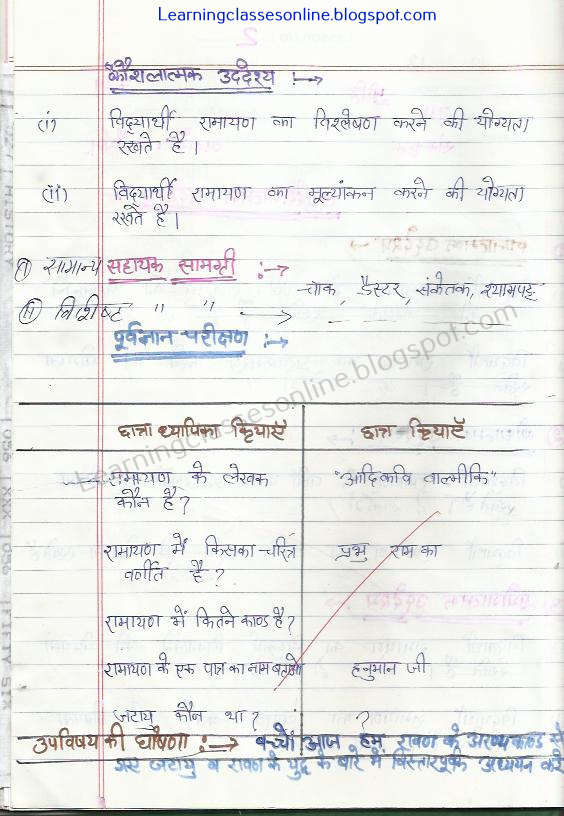 Learningclassesonline.blogspot.com
कौशलात्मक उद्देश्य :→
(i) विद्यार्थी रामायण का विश्लेषण करने की योग्यता
रखते है।
(ii) विद्यार्थी रामायण का मूल्यांकन करने की योग्यता
रखते है।
(i) सामान्य सहायक सामग्री :→
चाक, डैस्टर, संकेतक, श्यामपट्ट
(ii) विशिष्ट " " →
पूर्वज्ञान परीक्षण :→
Learningclassesonline.blogspot.com
छात्रा ध्यापिका क्रियाएँ छात्र क्रियाएँ
रामायण के लेखक "आदिकवि वाल्मीकि"
कौन है?
रामायण में किसका चरित्र प्रभु राम का
वर्णीत है?
रामायण में कितने काण्ड है?
रामायण के एक पात्र का नाम बताओ हनुमान जी
जटायु कौन था? ?
उपविषय की घोषणा :→ बच्चों आज हम रावण के अरण्यकाण्ड से
जटायु व रावण के युद्ध के बारे में विस्तारपूर्वक अध्ययन करे
HISTORY
056
XIX
056
FIFTY SIX